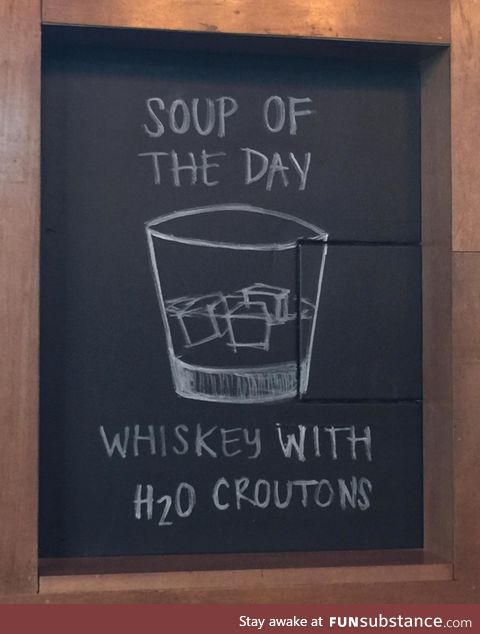 SOUP OF
THE DAY
WHISKEY WITH
H₂O CROUTONS
Stay awake at FUNsubstance.com